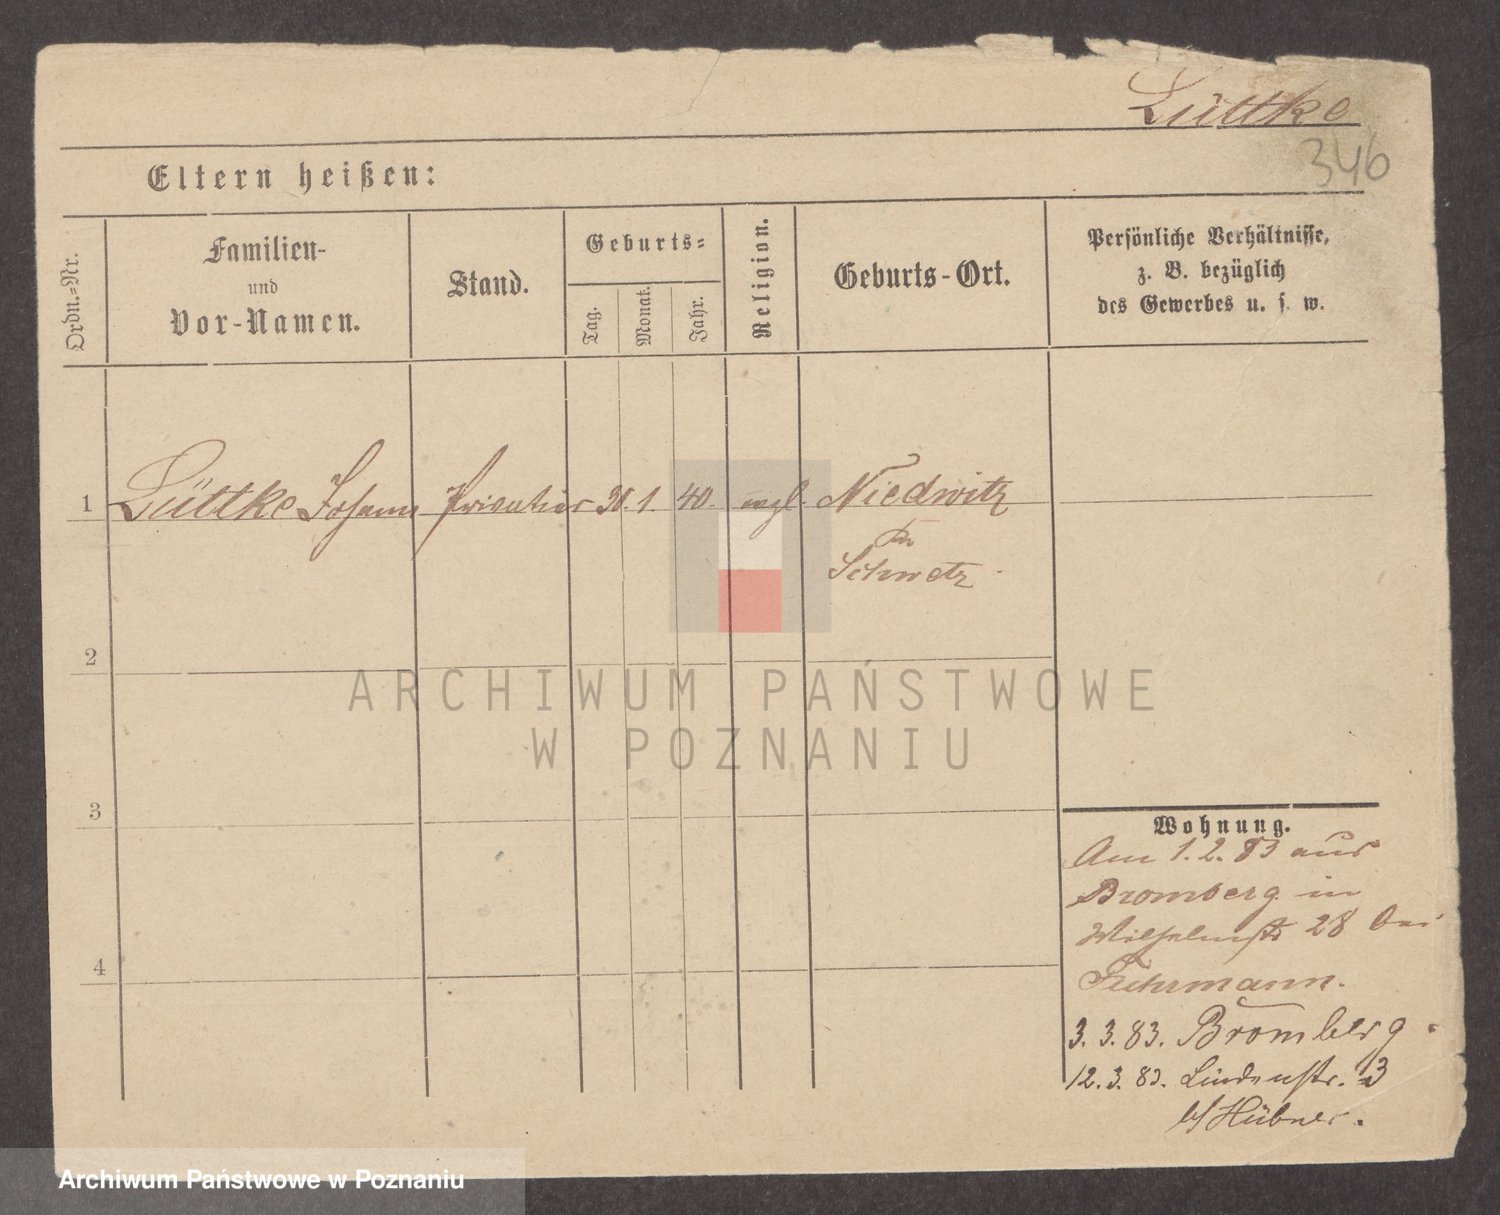 Lüttke
346
Eltern heißen:
Ordn.=Nr.
Familien-
und
Vor-Namen.
Stand.
Geburts=
Tag.
Monat.
Jahr.
Religion.
Geburts-Ort.
Persönliche Verhältnisse,
z. B. bezüglich
des Gewerbes u. s. w.
1 Lüttke Johann 1. 40. evgl. Niedwitz
Schwetz
2
ARCHIWUM PAŃSTWOWE
W POZNANIU
3
Wohnung.
Am 1. 2. 83 aus
Bromberg in
Wilhelmstr 28 bei
Fuhrmann.
4
3. 3. 83. Bromberg.
12. 3. 83. Lindenstr. 3
b/ Hübner.
Archiwum Państwowe w Poznaniu